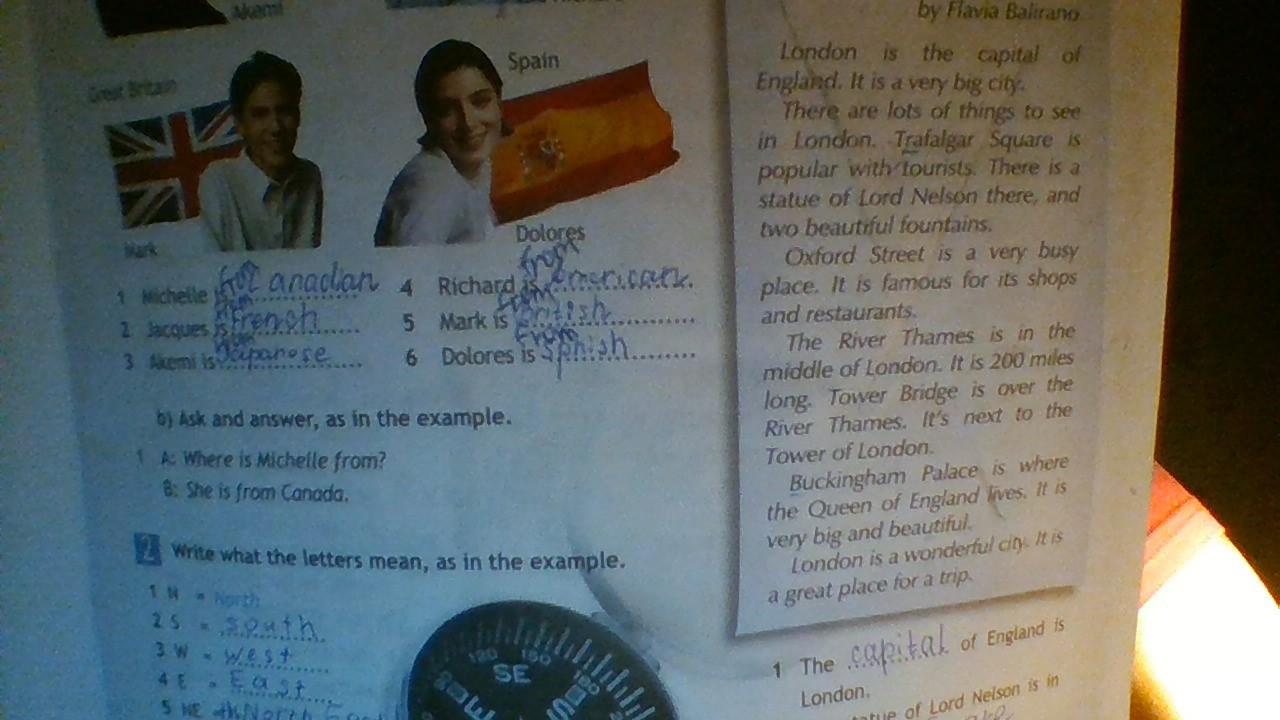 Akemi
Great Britain
Spain
Mark
Dolores
1 Michelle is from Canadian
2 Jacques is from French
3 Akemi is from Japanese
4 Richard is from American.
5 Mark is from British
6 Dolores is from Sphish
b) Ask and answer, as in the example.
1 A: Where is Michelle from?
B: She is from Canada.
2 Write what the letters mean, as in the example.
1 N = North
2 S = south
3 W = west
4 E = East
5 NE = North
120 150
SE
E
by Flavia Balirano
London is the capital of
England. It is a very big city.
There are lots of things to see
in London. Trafalgar Square is
popular with tourists. There is a
statue of Lord Nelson there, and
two beautiful fountains.
Oxford Street is a very busy
place. It is famous for its shops
and restaurants.
The River Thames is in the
middle of London. It is 200 miles
long. Tower Bridge is over the
River Thames. It's next to the
Tower of London.
Buckingham Palace is where
the Queen of England lives. It is
very big and beautiful.
London is a wonderful city. It is
a great place for a trip.
1 The capital of England is
London.
of Lord Nelson is in